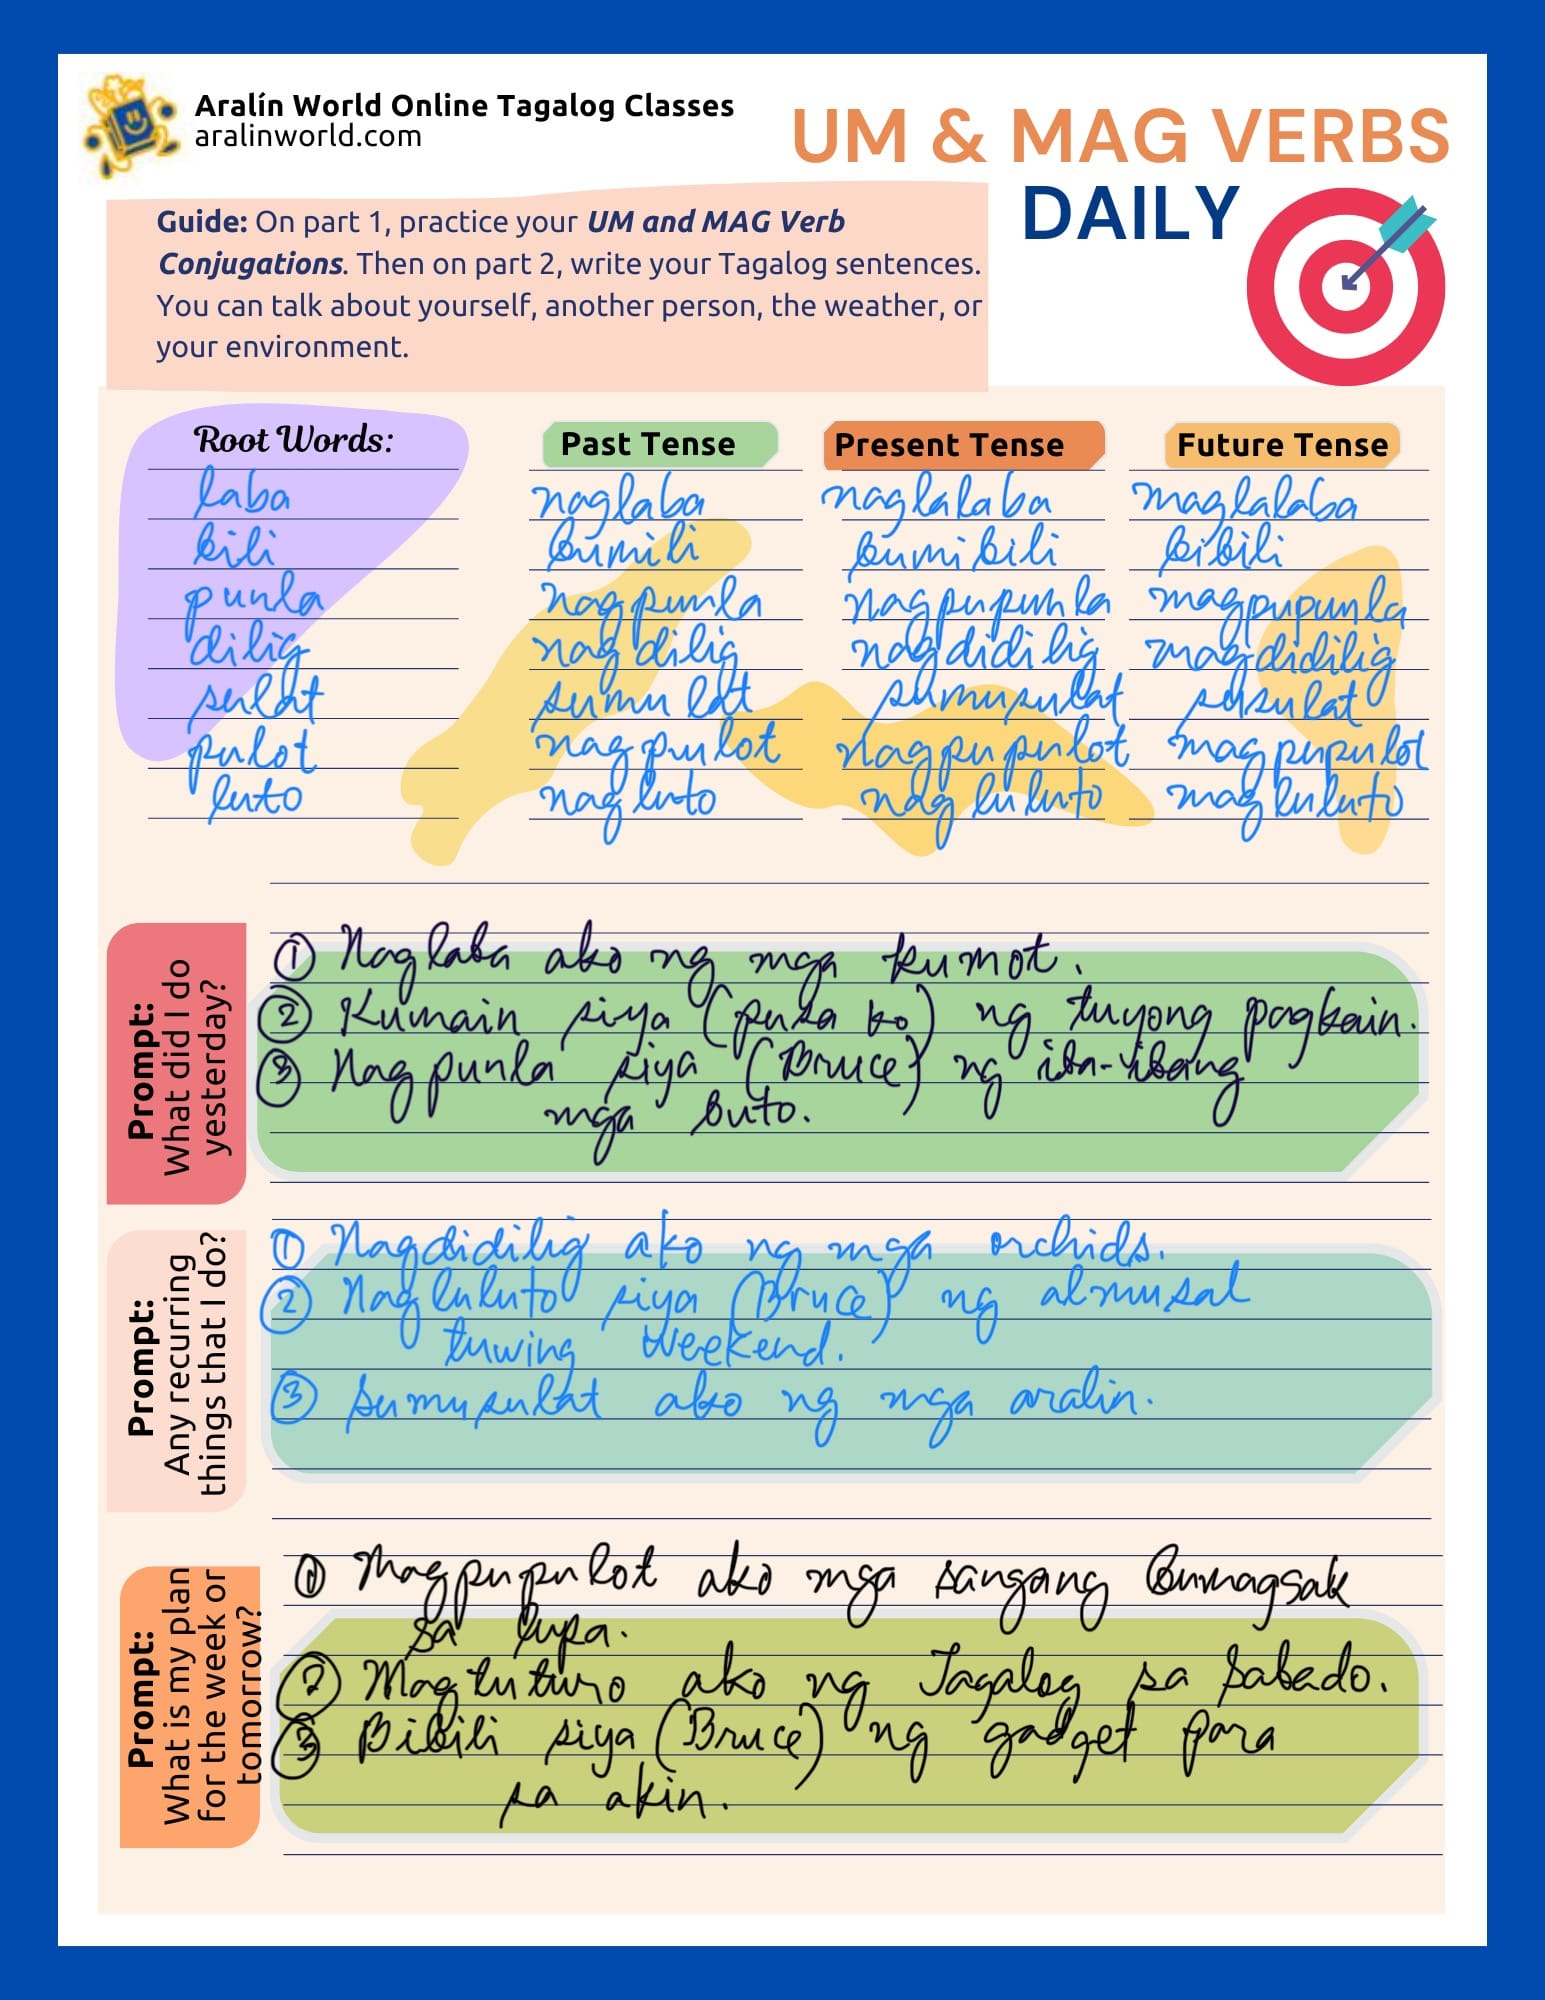 Aralín World Online Tagalog Classes
aralinworld.com
UM & MAG VERBS
DAILY
Guide: On part 1, practice your UM and MAG Verb
Conjugations. Then on part 2, write your Tagalog sentences.
You can talk about yourself, another person, the weather, or
your environment.
Root Words: Past Tense Present Tense Future Tense
laba naglaba naglalaba maglalaba
bili bumili bumibili bibili
punla nagpunla nagpupunla magpupunla
dilig nagdilig nagdidilig magdidilig
sulat sumulat sumusulat susulat
pulot nagpulot nagpupulot magpupulot
luto nagluto nagluluto magluluto
Prompt:
What did I do
yesterday?
① Naglaba ako ng mga kumot.
② Kumain siya (pusa ko) ng tuyong pagkain.
③ Nagpunla siya (Bruce) ng iba-ibang
mga buto.
Prompt:
Any recurring
things that I do?
① Nagdidilig ako ng mga orchids.
② Nagluluto siya (Bruce) ng almusal
tuwing weekend.
③ Sumusulat ako ng mga aralin.
Prompt:
What is my plan
for the week or
tomorrow?
① Magpupulot ako mga sangang bumagsak
sa lupa.
② Magtuturo ako ng Tagalog sa Sabado.
③ Bibili siya (Bruce) ng gadget para
sa akin.